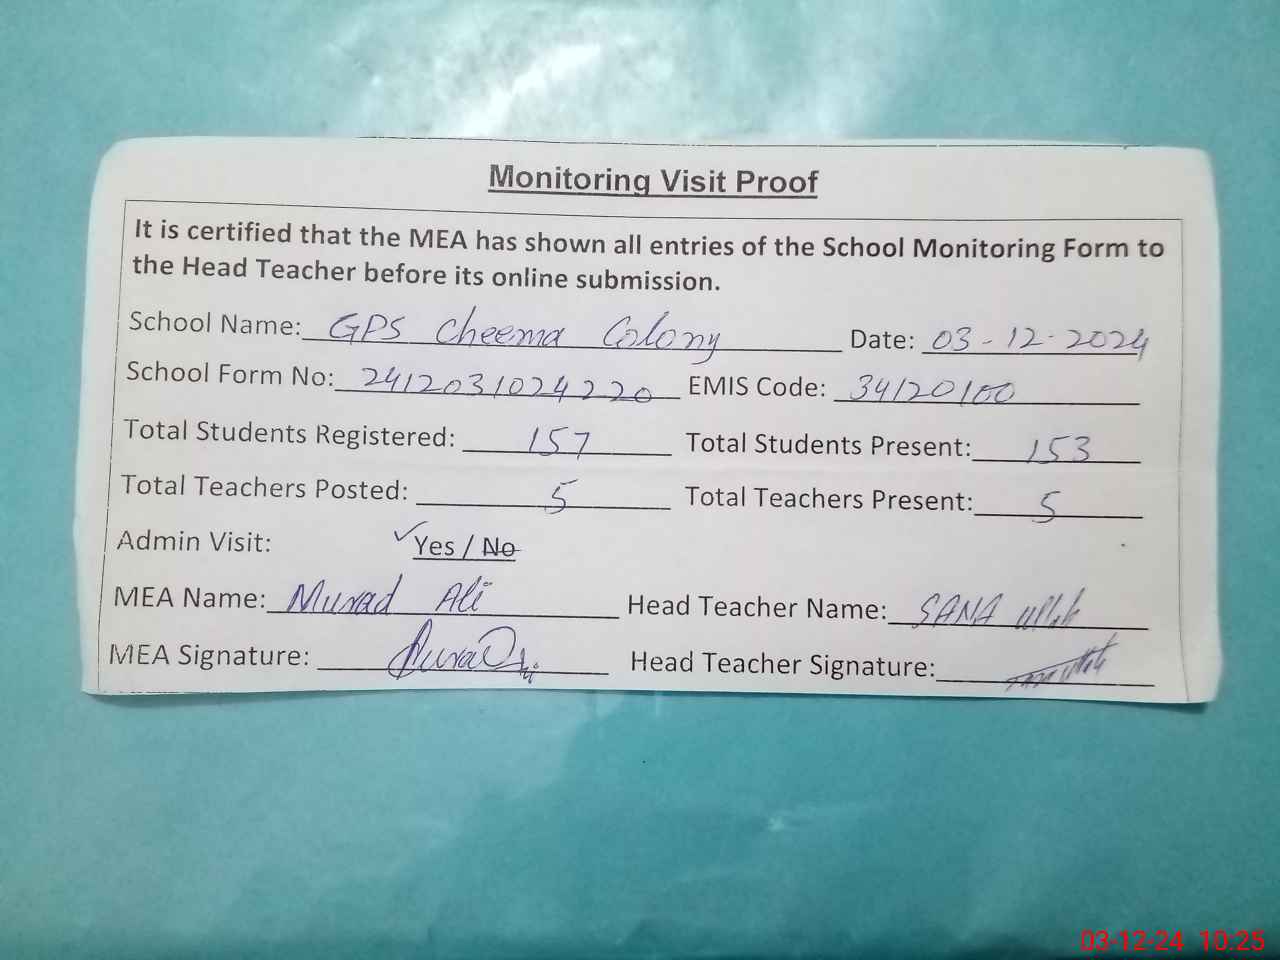 Monitoring Visit Proof
It is certified that the MEA has shown all entries of the School Monitoring Form to
the Head Teacher before its online submission.
School Name: GPS Cheema Colony Date: 03-12-2024
School Form No: 2412031024220 EMIS Code: 34120100
Total Students Registered: 157 Total Students Present: 153
Total Teachers Posted: 5 Total Teachers Present: 5
Admin Visit: ✓Yes / No
MEA Name: Murad Ali Head Teacher Name: SANA Ullah
MEA Signature: Head Teacher Signature:
03-12-24 10:25